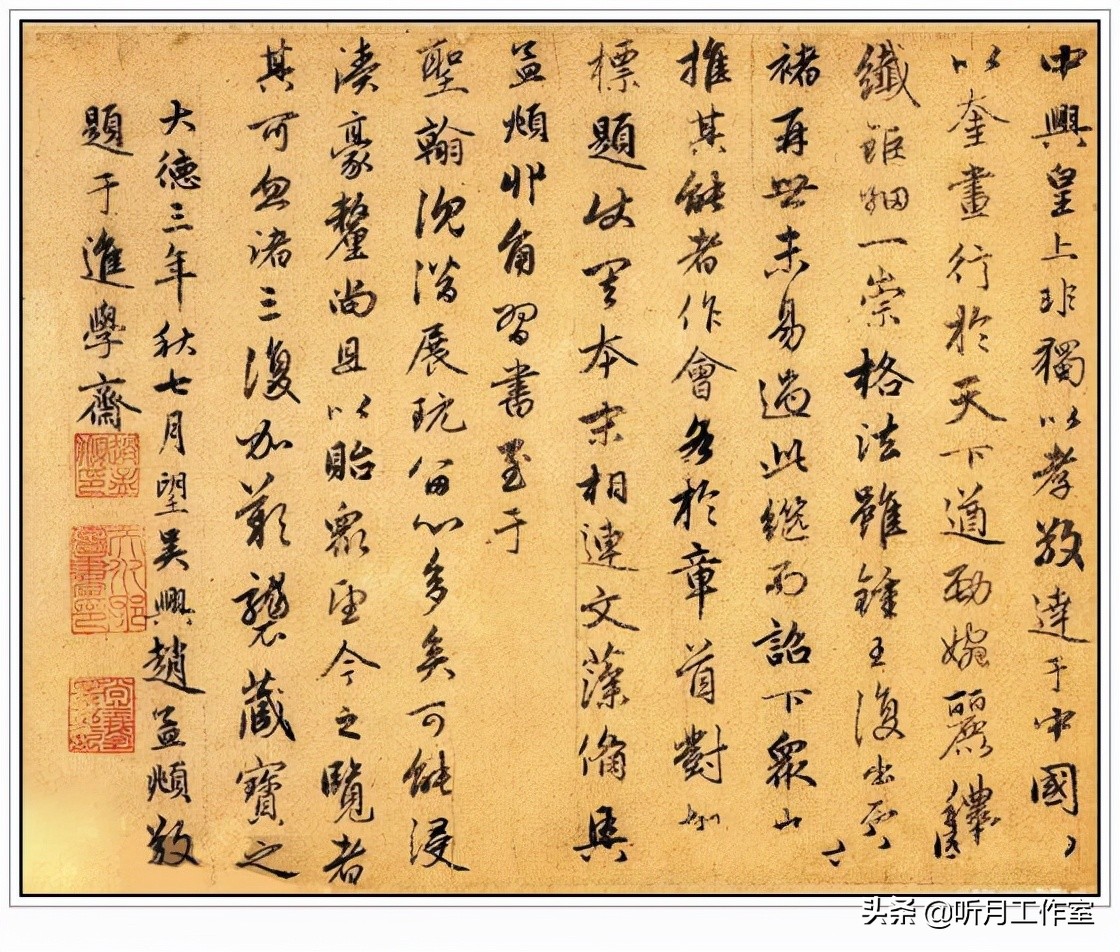 中興皇上非獨以孝敬達于國
以奎畫行於天下遒勁婉麗穠
纖鉅細一崇格法雖鍾王復出
褚再世未易過此繼而詔下眾山
推其能者作會各於章首對如
標題本末相連文藻備具
孟頫丱角習書至于
聖翰沈潛展玩留心多矣可能浸
漬豪釐尚且以貽眾今之覽者
其可忽諸三復加歎襲藏寶之
大德三年秋七月望吳興趙孟頫敬
題于進學齋
头条 @听月工作室